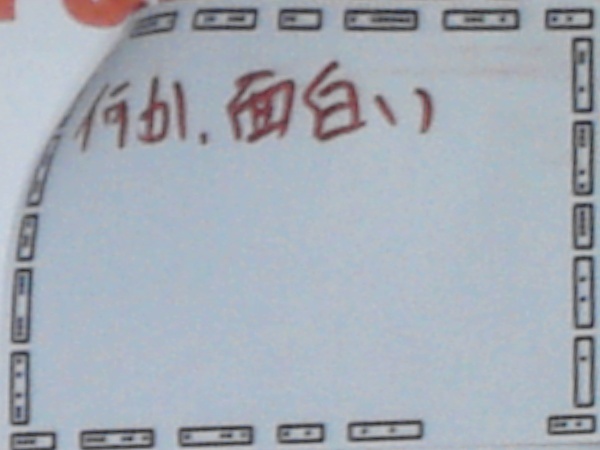 何か、面白い